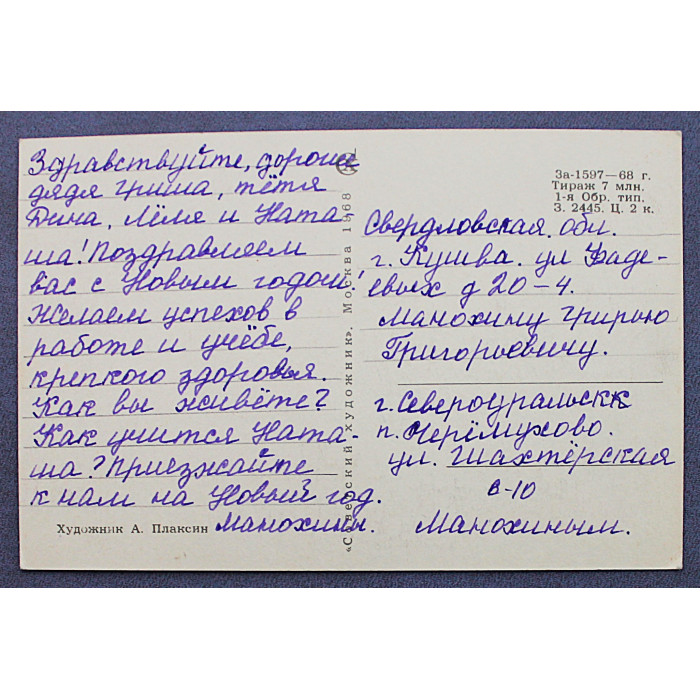 Здравствуйте, дорогие
дядя Гриша, тётя
Дина, Лёля и Ната-
ша! Поздравляем
вас с Новым годом!
Желаем успехов в
работе и учёбе,
крепкого здоровья.
Как вы живёте?
Как учится Ната-
ша? Приезжайте
к нам на Новый год.
Манохины.
Художник А. Плаксин
«Советский художник». Москва 1968
За-1597—68 г.
Тираж 7 млн.
1-я Обр. тип.
З. 2445. Ц. 2 к.
Свердловская. обл.
г. Кушва. ул Фаде-
евых д 20-4.
Манохину Григорью
Григорьевичу.
г. Североуральскк
п. Черёмухово.
ул. Шахтёрская
в-10
Манохиным.